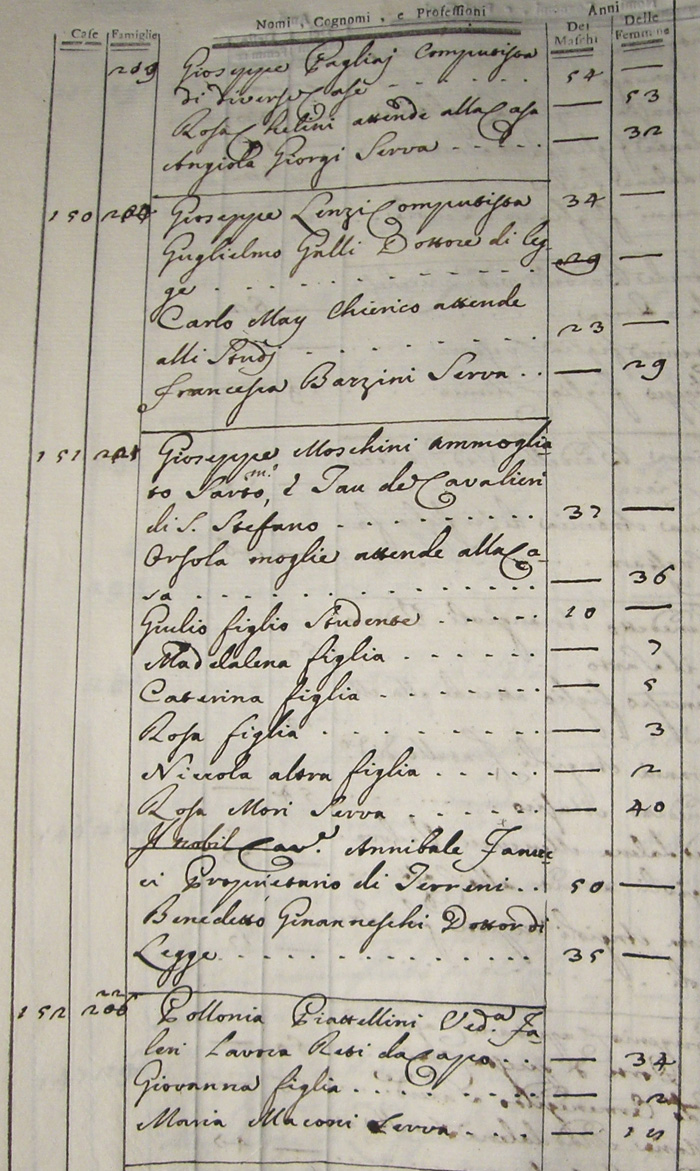 Case Famiglie Nomi, Cognomi, e Professioni Anni
Dei Maschi Delle Femmine
Gioseppe Pagliaj Computista
di diverse Case - - - - - 54 —
Rosa Chelini attende alla Casa — 53
Angiola Giorgi Serva - - - - — 32
150 Gioseppe Lenzi Computista 34 —
Guglielmo Gulli Dottore di leg-
ge - - - - - - 29 —
Carlo May Chierico attende
alli Studj - - - - - 23 —
Francesca Barzini Serva . . — 29
151 Gioseppe Moschini ammoglia-
to Sarto, è Tau de Cavalieri
di S. Stefano - - - - - - 37 —
Orsola moglie attende alla Ca-
sa - - - - - - — 36
Giulio figlio Studente - - - - 10 —
Maddalena figlia - - - - - — 7
Caterina figlia - - - - - - — 5
Rosa figlia - - - - - - — 3
Niccola altra figlia - - - - — 2
Rosa Mori Serva - - - - - — 40
Il nobil Cav.e Annibale
ci Proprietario di Terreni . . 50 —
Benedetto Ginanneschi Dottor di
Legge - - - - - - 35 —
152 Pollonia Piattellini Ved.a Fa-
leri Lavora Reti da Capo . . — 34
Giovanna figlia - - - - - — 2
Maria Maconi Serva - - - —